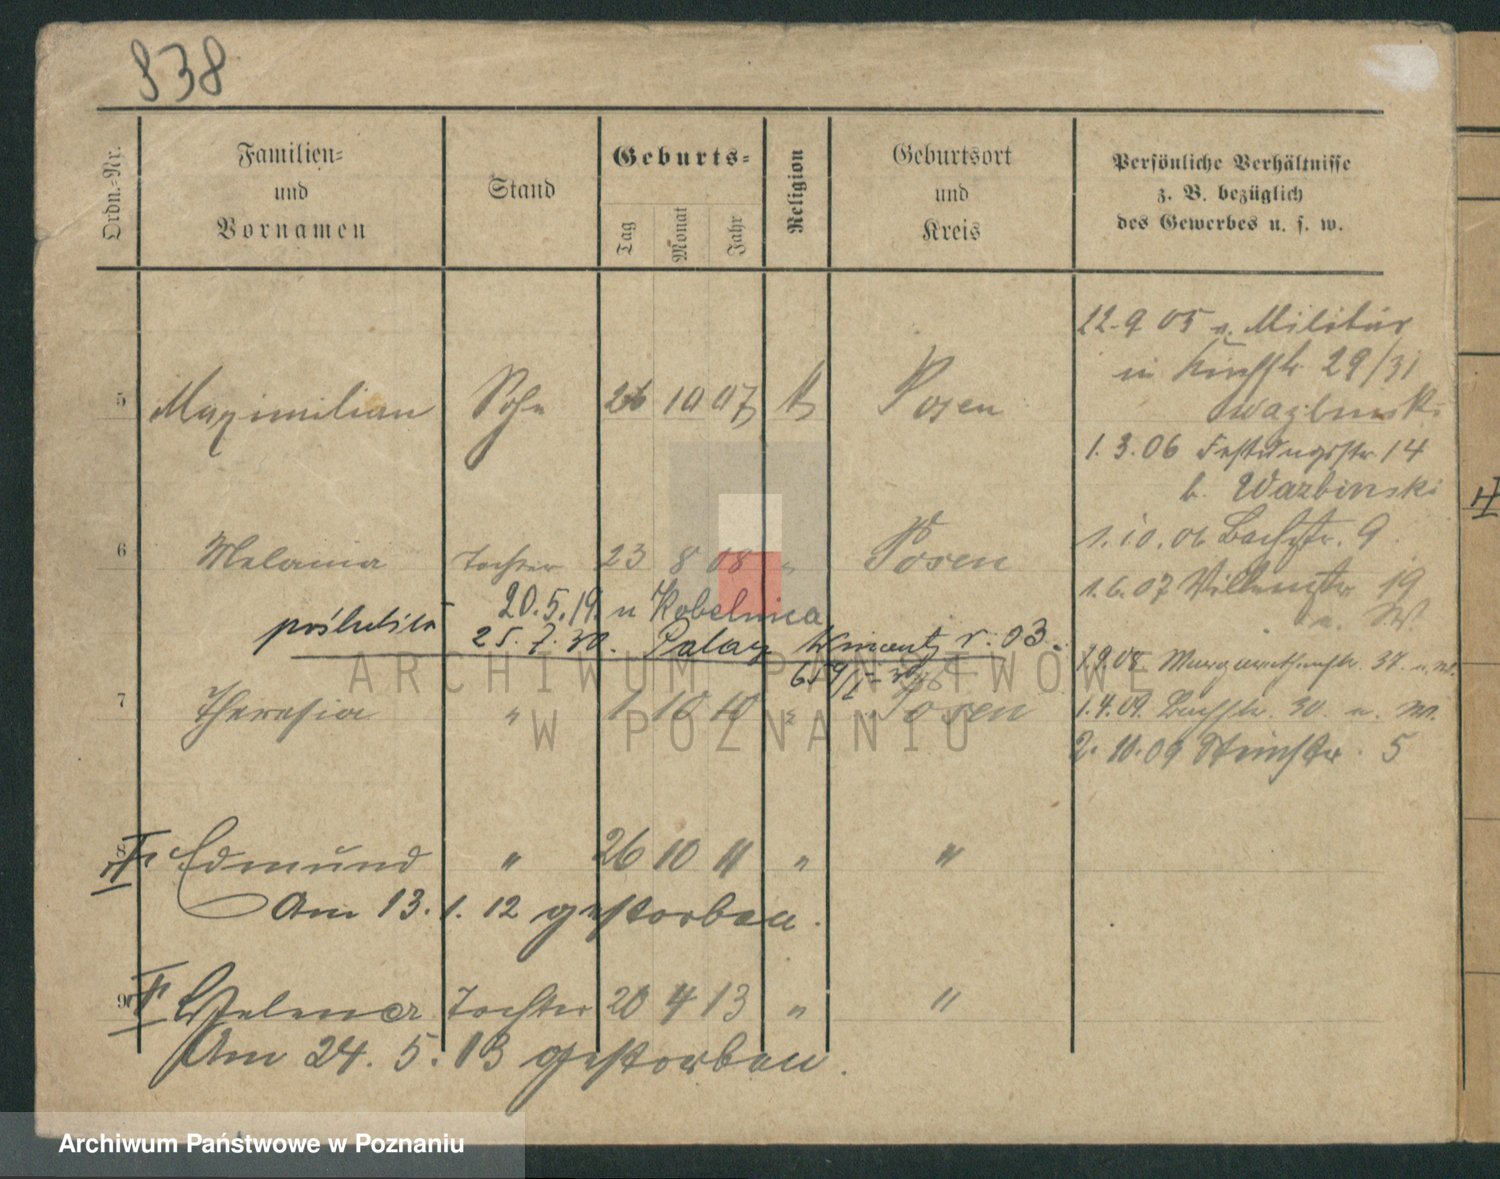 838
Ordn.-Nr.
Familien-
und
Vornamen
Stand
Geburts-
Tag
Monat
Jahr
Religion
Geburtsort
und
Kreis
Persönliche Verhältnisse
z. B. bezüglich
des Gewerbes u. s. w.
22.9 05 v. Militär
in 29/31
5 Maximilian Sohn 26 10 07 k Posen
1.3.06 Festungsstr 14
b. Wazbinski
6 Melania Tochter 23 8 08 " Posen
1.10.06 Bachstr. 9
1.6.07 19
20.5.19 n Kobelnica
poślubiła 25.7.30. Palacz Wincenty r. 03
1.9.08 Margarethenstr. 38.
7 Theresia " 1 10 10 " Posen
1.4.09. Bachstr. 30. u. W.
2.10.09 5
8 Edmund " 26 10 11 " "
Am 13.1.12 gestorben.
9 Helena Tochter 20 4 13 " "
Am 24.5.13 gestorben.
ARCHIWUM PAŃSTWOWE
W POZNANIU
Archiwum Państwowe w Poznaniu